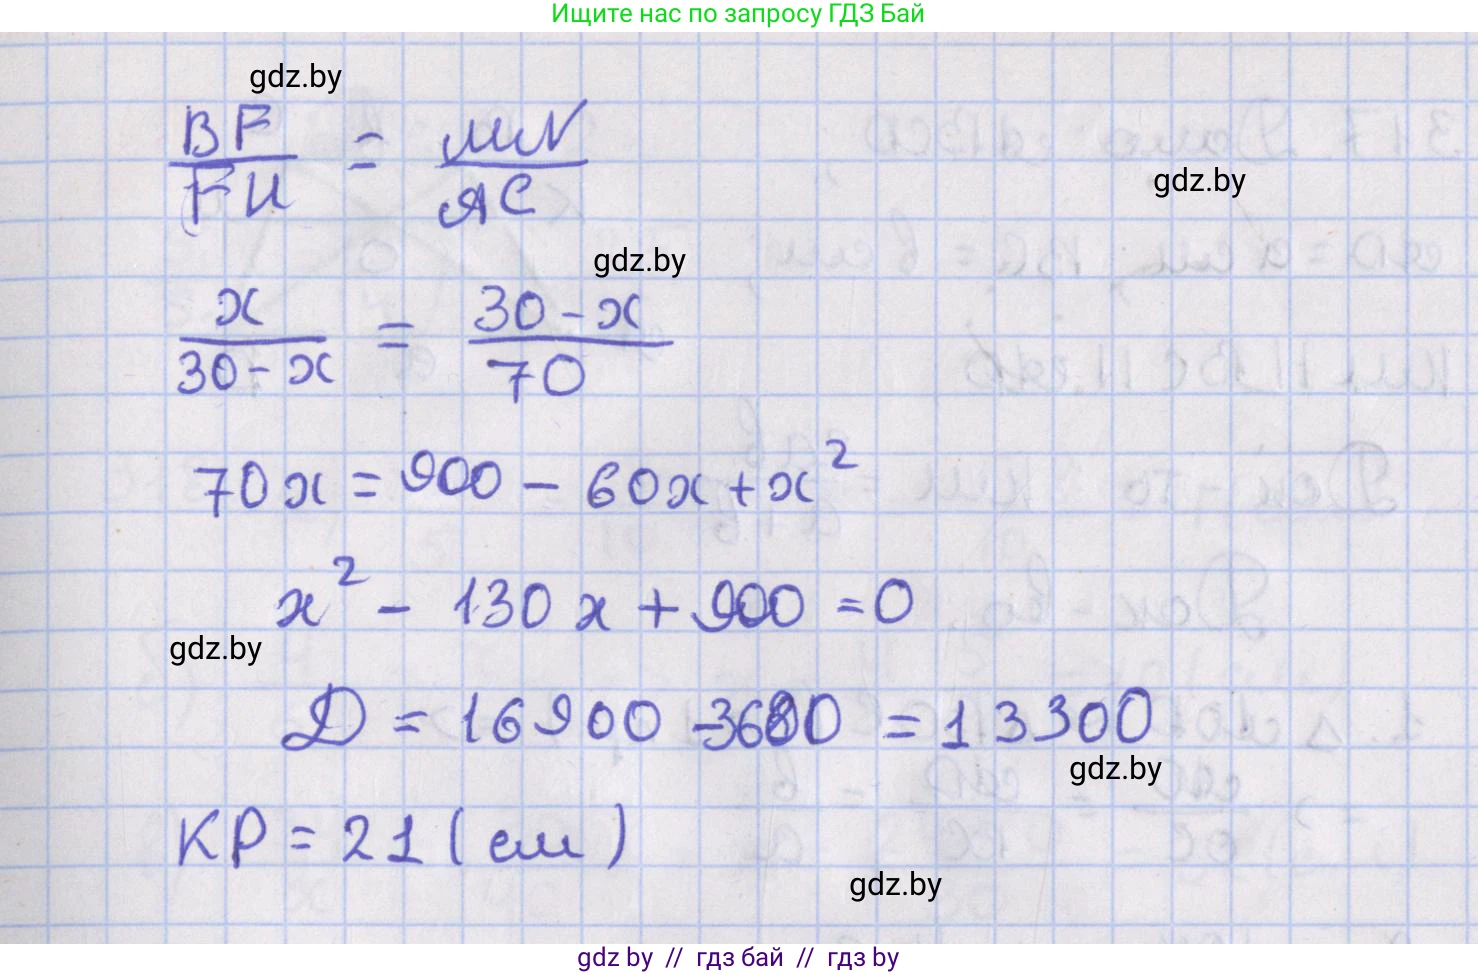 Ищите нас по запросу ГДЗ Бай
gdz.by
BF/FH = MN/AC
gdz.by
gdz.by
x/30-x = 30-x/70
70x = 900 - 60x + x²
x² - 130x + 900 = 0
gdz.by
Д = 16900 - 3600 = 13300
gdz.by
KP = 21 (см)
gdz.by
gdz by // гдз бай // гдз by